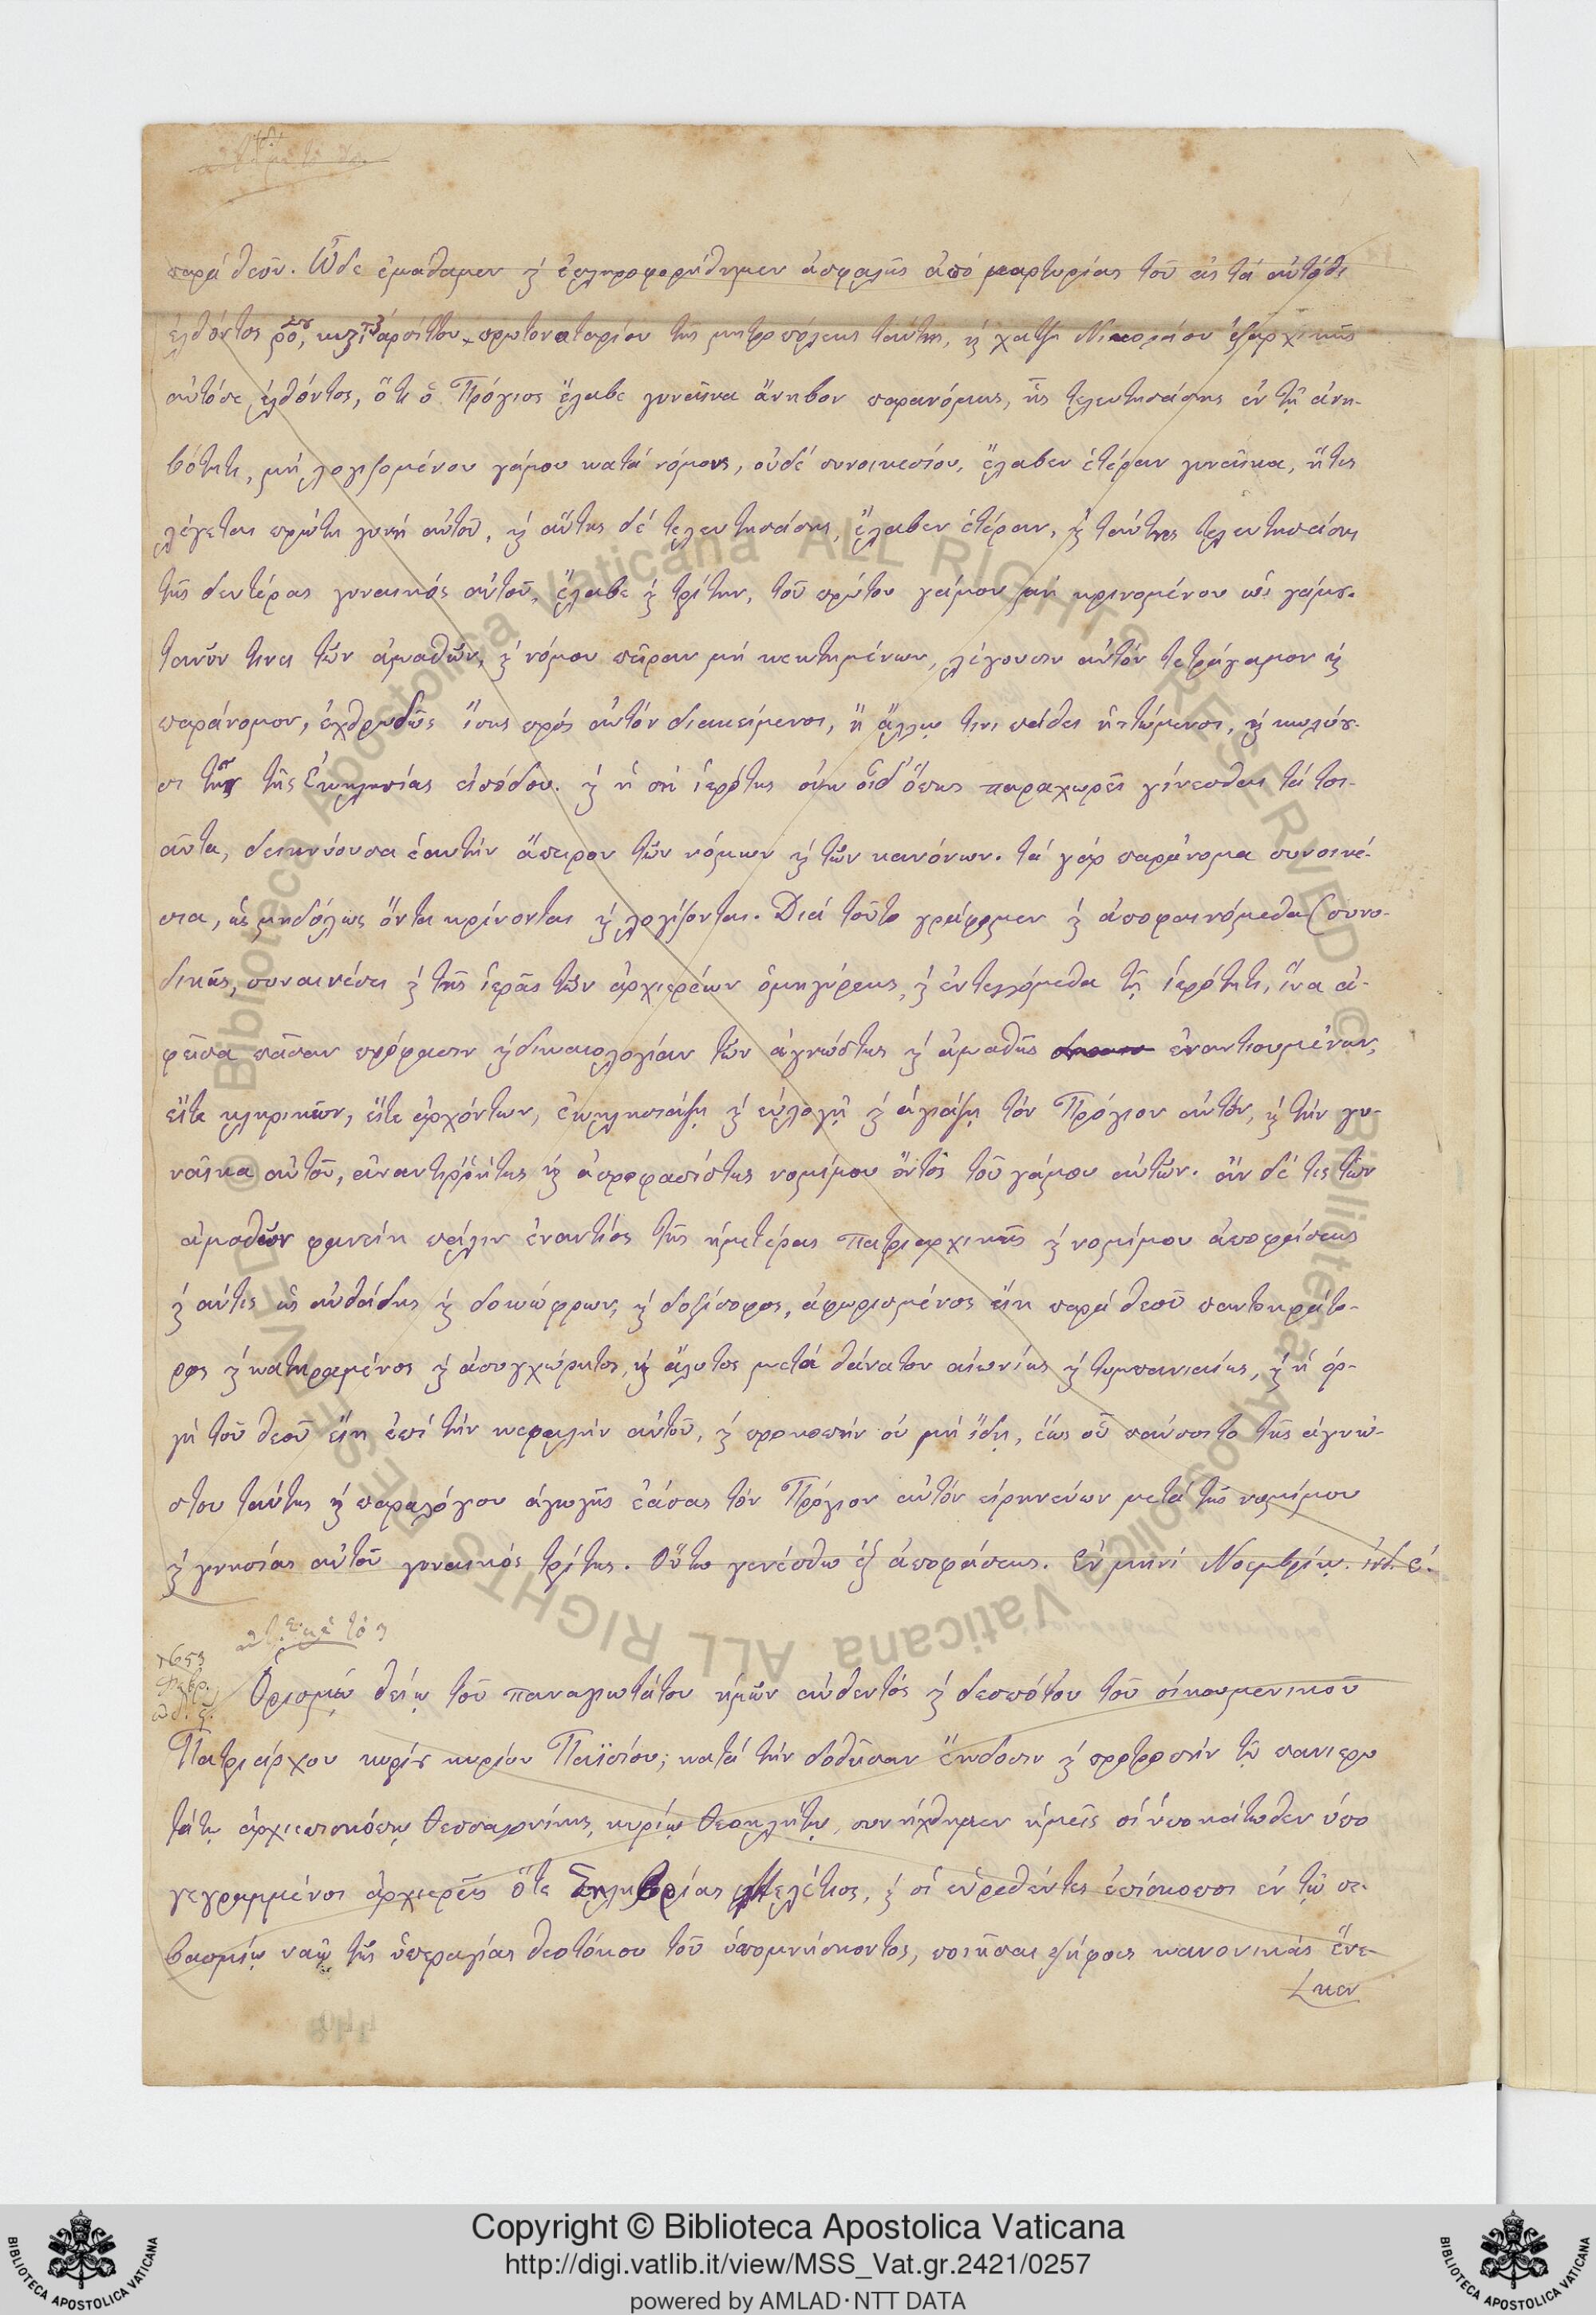 παρὰ θεοῦ. Ὧδε ἐμάθαμεν καὶ ἐπληροφορήθημεν ἀσφαλῶς ἀπὸ μαρτυρίας τοῦ εἰς τὰ αὐτόθι
ἐλθόντος πρωτονοταρίου τῆς μητροπόλεως ταύτης, καὶ χατζῆ Νικολάου ἐξαρχικῶς
αὐτόσε ἐλθόντος, ὅτι ὁ Πρόγιος ἔλαβε γυναῖκα ἄνηβον παρανόμως, ἧς τελευτησάσης ἐν τῇ ἀνη-
βότητι, μὴ λογιζομένου γάμου κατὰ νόμους, οὐδὲ συνοικεσίου, ἔλαβεν ἑτέραν γυναῖκα, ἥτις
λέγεται πρώτη γυνὴ αὐτοῦ, καὶ αὕτης δὲ τελευτησάσης, ἔλαβεν ἑτέραν, καὶ ταύτης τελευτησάσης
τῆς δευτέρας γυναικὸς αὐτοῦ, ἔλαβε καὶ τρίτην, τοῦ πρώτου γάμου μὴ κρινομένου ὡς γάμου.
τανῦν τινες τῶν ἀμαθῶν, καὶ νόμου πεῖραν μὴ κεκτημένων, λέγουσιν αὐτὸν τετράγαμον καὶ
παράνομον, ἐχθρωδῶς ἴσως πρὸς αὐτὸν διακείμενοι, ἢ ἄλλῳ τινι πάθει ἡττώμενοι, καὶ κωλύου-
σι τῆς Ἐκκλησίας εἰσόδου. καὶ ἡ σὴ ἱερότης οὐκ οἶδ' ὅπως παραχωρεῖ γίνεσθαι τὰ τοι-
αῦτα, δεικνύουσα ἑαυτὴν ἄπειρον τῶν νόμων καὶ τῶν κανόνων. τὰ γὰρ παράνομα συνοικέ-
σια, ὡς μηδόλως ὄντα κρίνονται καὶ λογίζονται. Διὰ τοῦτο γράφομεν καὶ ἀποφαινόμεθα συνο-
δικῶς, συναινέσει καὶ τῆς ἱερᾶς τῶν ἀρχιερέων ὁμηγύρεως, καὶ ἐντελλόμεθα τῇ ἱερότητι, ἵνα ἀ-
φεῖσα πᾶσαν πρόφασιν καὶ δικαιολογίαν τῶν ἀγνώστως καὶ ἀμαθῶς ἐναντιουμένων,
εἴτε κληρικῶν, εἴτε ἀρχόντων, ἐκκλησιάσῃ καὶ εὐλογῇ καὶ ἁγιάσῃ τὸν Πρόγιον αὐτὸν, καὶ τὴν γυ-
ναῖκα αὐτοῦ, ἀναντιρρήτως καὶ ἀπροφασίστως νομίμου ὄντος τοῦ γάμου αὐτῶν. ἂν δέ τις τῶν
ἀμαθῶν φανείη πάλιν ἐναντίος τῆς ἡμετέρας πατριαρχικῆς καὶ νομίμου ἀποφάσεως
ὡς αὐθάδης καὶ δοκιόφρων, καὶ δοξόσοφος, ἀφωρισμένος εἴη παρὰ θεοῦ παντοκράτο-
ρος καὶ κατηραμένος καὶ ἀσυγχώρητος, καὶ ἄλυτος μετὰ θάνατον αἰωνίως καὶ τυμπανιαίως, καὶ ἡ ὀρ-
γὴ τοῦ θεοῦ εἴη ἐπὶ τὴν κεφαλὴν αὐτοῦ, καὶ προκοπὴν οὐ μὴ ἴδῃ, ἕως οὗ παύσοιτο τῆς ἀγνώ-
στου ταύτης καὶ παραλόγου ἀγωγῆς ἐάσας τὸν Πρόγιον αὐτὸν εἰρηνεύων μετὰ τῆς νομίμου
καὶ γνησίας αὐτοῦ γυναικὸς τρίτης. Οὕτω γενέσθω ἐξ ἀποφάσεως. Ἐν μηνὶ Νοεμβρίῳ. ἰνδ. ε΄.
1653
Ὁρισμῷ θείῳ τοῦ παναγιωτάτου ἡμῶν αὐθεντὸς καὶ δεσπότου τοῦ οἰκουμενικοῦ
Πατριάρχου κυρίου κυρίου Παϊσίου, κατὰ τὴν δοθεῖσαν ἔκδοσιν καὶ προτροπὴν τῷ πανιερω
τάτῳ ἀρχιεπισκόπῳ Θεσσαλονίκης, κυρίῳ Θεοκλήτῳ, συνήχθημεν ἡμεῖς οἱ ὑποκάτωθεν ὑπο
γεγραμμένοι ἀρχιερεῖς ὅτε Σηλυβρίας Μελέτιος, καὶ οἱ εὑρεθέντες ἐπίσκοποι ἐν τῷ σε-
βασμίῳ ναῷ τῆς ὑπεραγίας θεοτόκου τοῦ ὑπομνήσκοντος, ποιῆσαι ψήφους κανονικὰς ἕνε-
κεν
Copyright © Biblioteca Apostolica Vaticana
http://digi.vatlib.it/view/MSS_Vat.gr.2421/0257
powered by AMLAD·NTT DATA